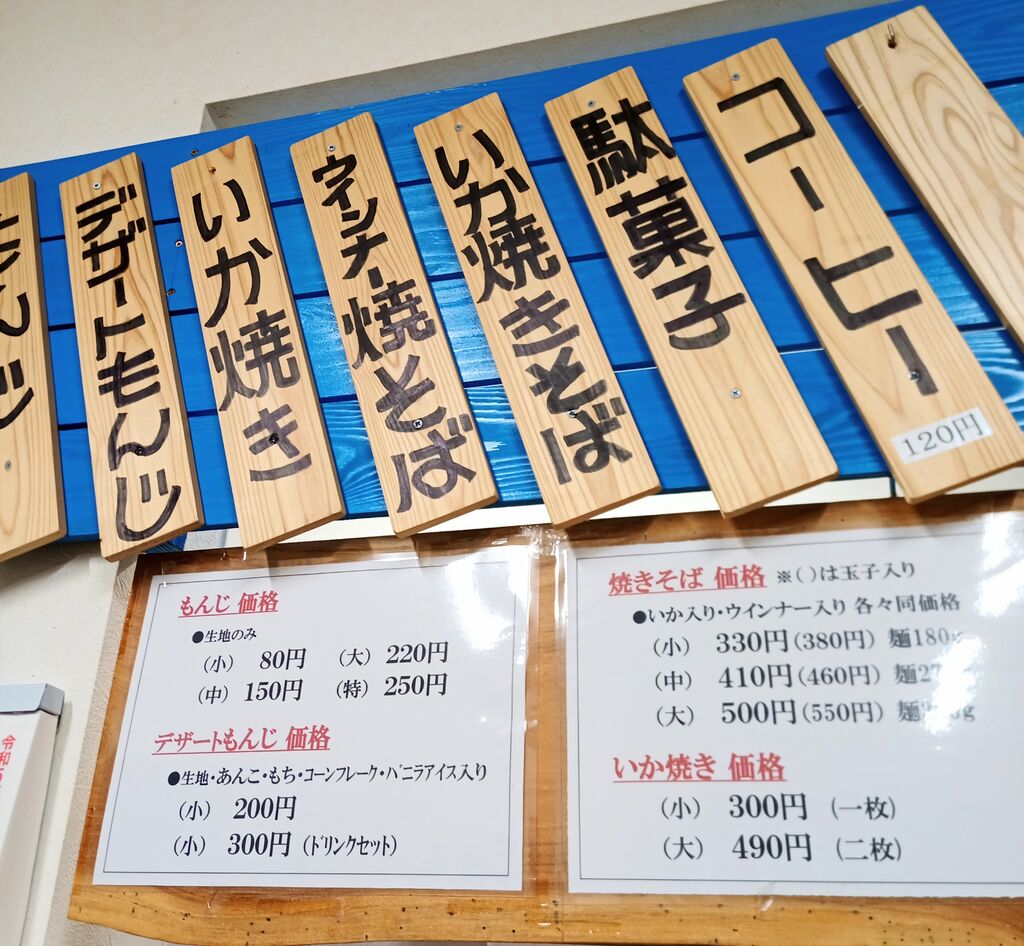 もんじ
デザートもんじ
いか焼き
ウインナー焼そば
いか焼きそば
駄菓子
コーヒー
120円
もんじ 価格
●生地のみ
(小) 80円 (大) 220円
(中) 150円 (特) 250円
デザートもんじ 価格
●生地・あんこ・もち・コーンフレーク・バニラアイス入り
(小) 200円
(小) 300円 (ドリンクセット)
焼きそば 価格 ※( )は玉子入り
●いか入り・ウインナー入り 各々同価格
(小) 330円(380円) 麺180g
(中) 410円(460円) 麺
(大) 500円(550円) 麺
いか焼き 価格
(小) 300円 (一枚)
(大) 490円 (二枚)
令和